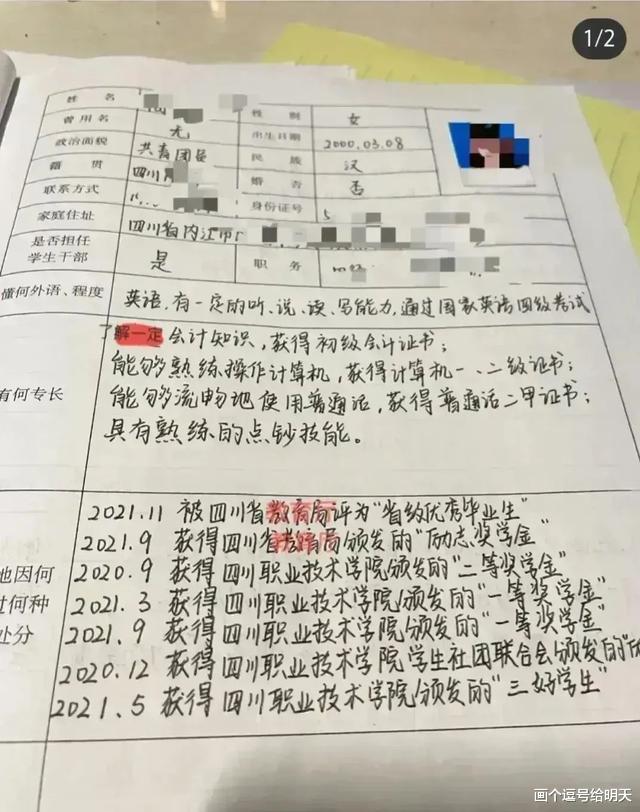 1/2
姓 名
性 别 女
曾用名 无 出生日期 2000.03.08
政治面貌 共青团员 民 族 汉
籍 贯 四川 婚 否 否
联系方式 身份证号 5
家庭住址 四川省内江市
是否担任
学生干部 是 职 务
懂何外语、程度 英语,有一定的听、说、读、写能力,通过国家英语四级考试
了解一定会计知识,获得初级会计证书;
能够熟练操作计算机,获得计算机一、二级证书;
有何专长 能够流畅地使用普通话,获得普通话二甲证书;
具有熟练的点钞技能。
2021.11 被四川省教育局评为"省级优秀毕业生"
2021.9 获得四川省教育局颁发的"励志奖学金"
地因何 2020.9 获得四川职业技术学院颁发的"二等奖学金"
过何种 2021.3 获得四川职业技术学院颁发的"一等奖学金"
处分 2021.9 获得四川职业技术学院颁发的"一等奖学金"
2020.12 获得四川职业技术学院学生社团联合会颁发的"
2021.5 获得四川职业技术学院颁发的"三好学生"
画个逗号给明天